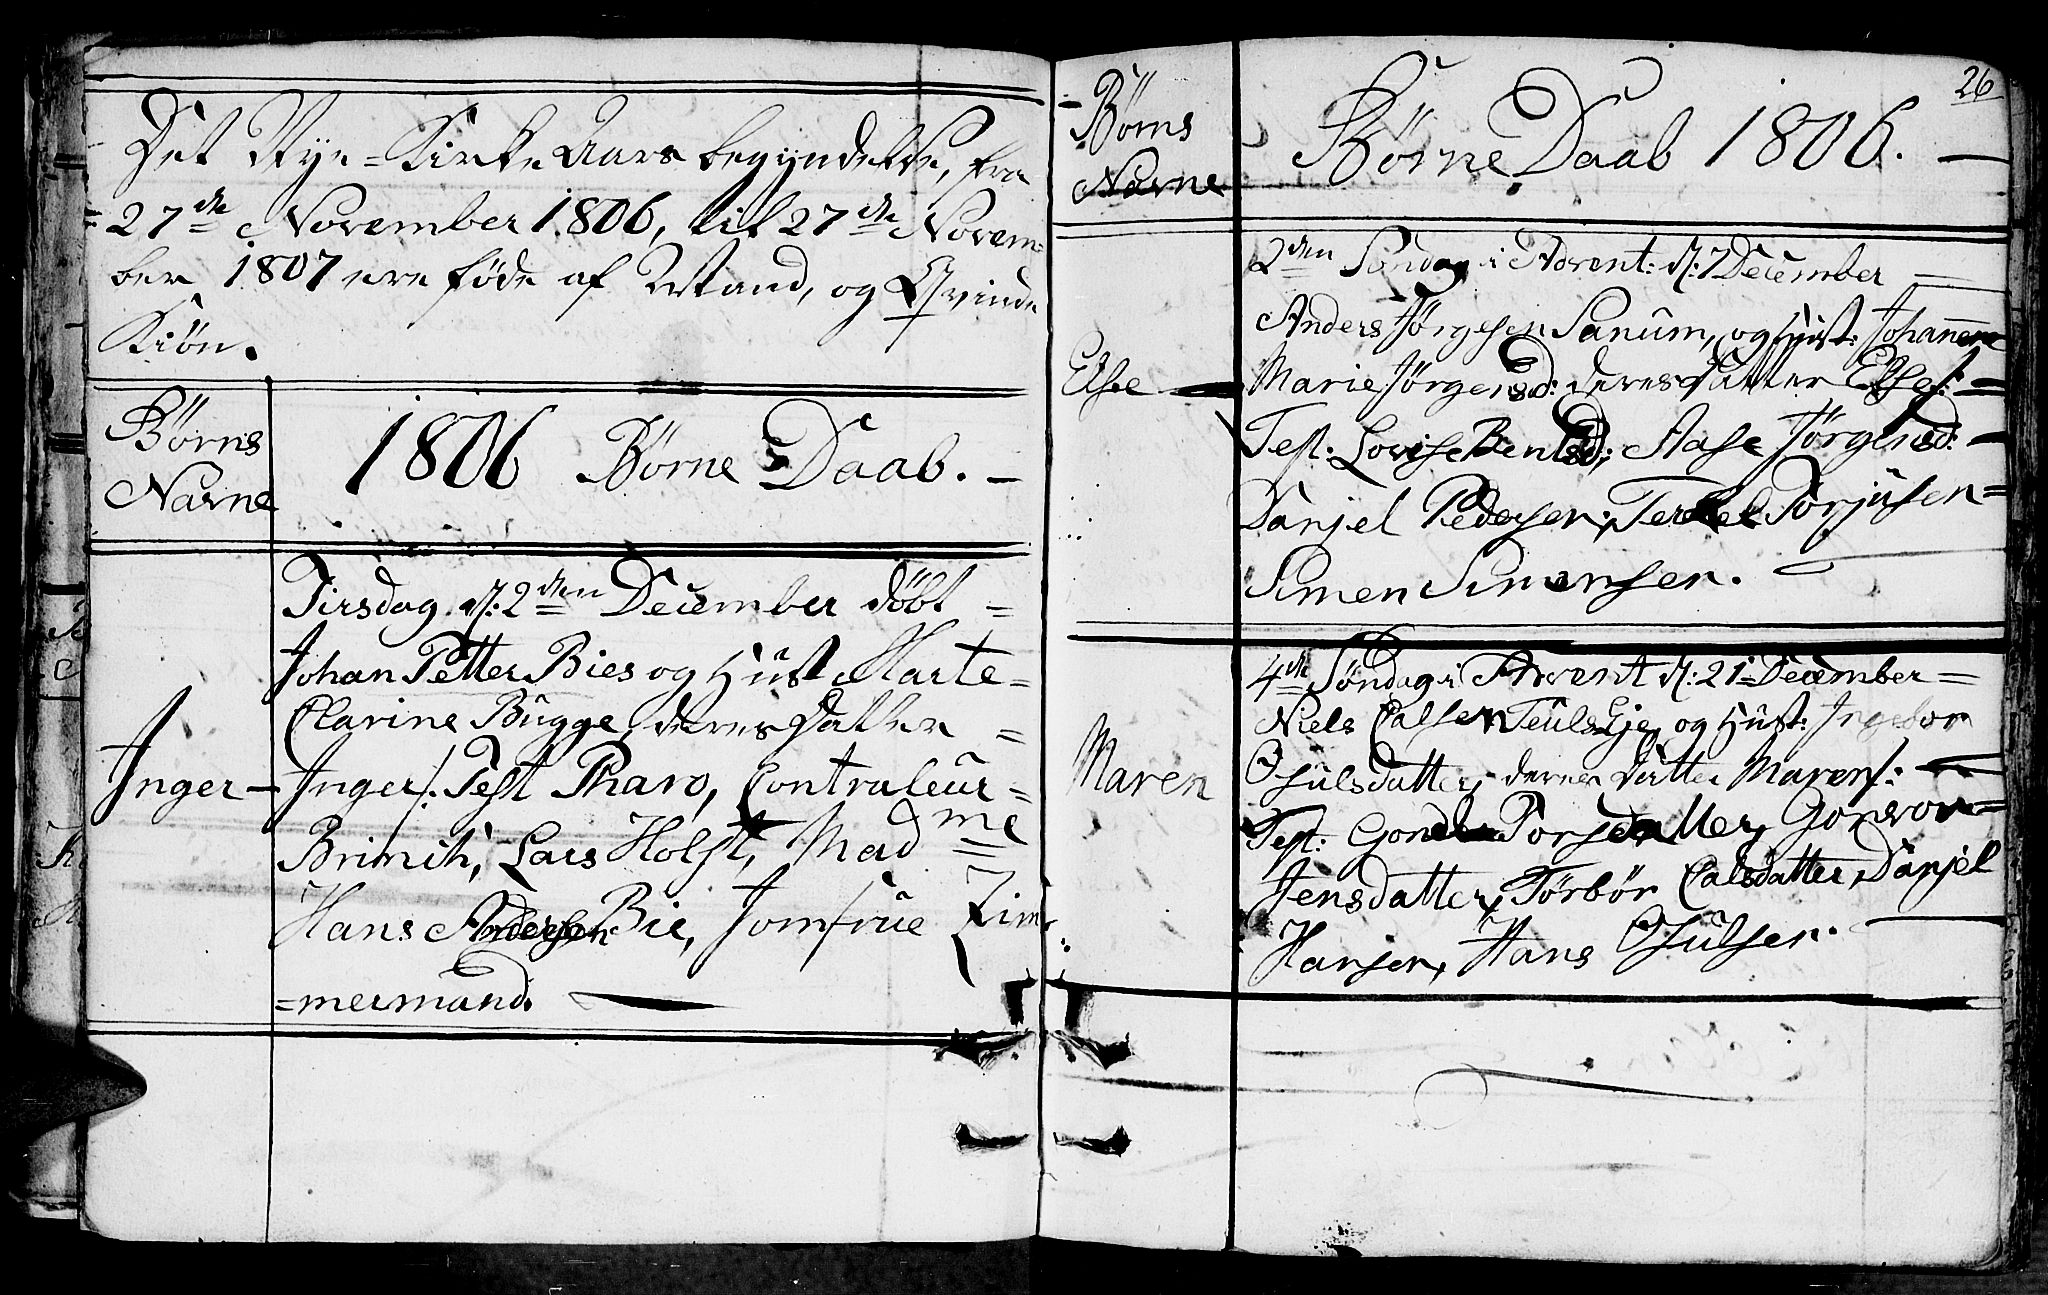 Det Nye=Kirke Aars begyndelse, fra
27de November 1806, til 27de Novem=
ber 1807 ere føde af Mand, og Qvinde
Kiøn.
Børns
Navne
1806 Børne Daab. —
Tirsdag d: 2den December døbt =
Johan Petter Bies og Hust Marte=
Clarine Bugge, deres Datter =
Inger —
Inger /: Test Pharo, Contraleur=
Brinich, Lars Holst, Mad me
Hans Andersen Bie, Jomfrue Zim=
=mermand.
26
Børns
Navne
Børne Daab 1806. —
2den Søndag i Advent: d: 7 December =
Anders Jørgesen Sanum, og Hust: Johanne
Else —
Marie Jørgensd: deres Datter Else/: =
Test: Lovise Bentsd; Aase Jørgensd: =
Danjel Pedersen; Terkel Torjusen=
Simen Simensen.
4de Søndag i Advent d: 21 December =
Niels Calsen og Hust: Ingebor
Maren
Osulsdatter, deres Datter Maren/: =
Test: Torsdatter, Gonvor=
Jensdatter, Torbør Calsdatter, Danjel
Hansen, Hans Osulsen.